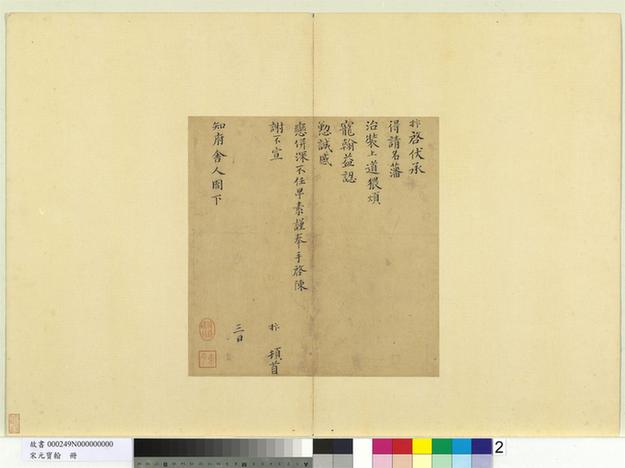 啓伏承
得請名藩
治裝上道猥煩
寵翰益認
懃誠感
戀併深不任早素謹奉手啓陳
謝不宣
頓首
三日
知府舍人閤下
故書 000249N000000000
宋元寶翰 冊
2